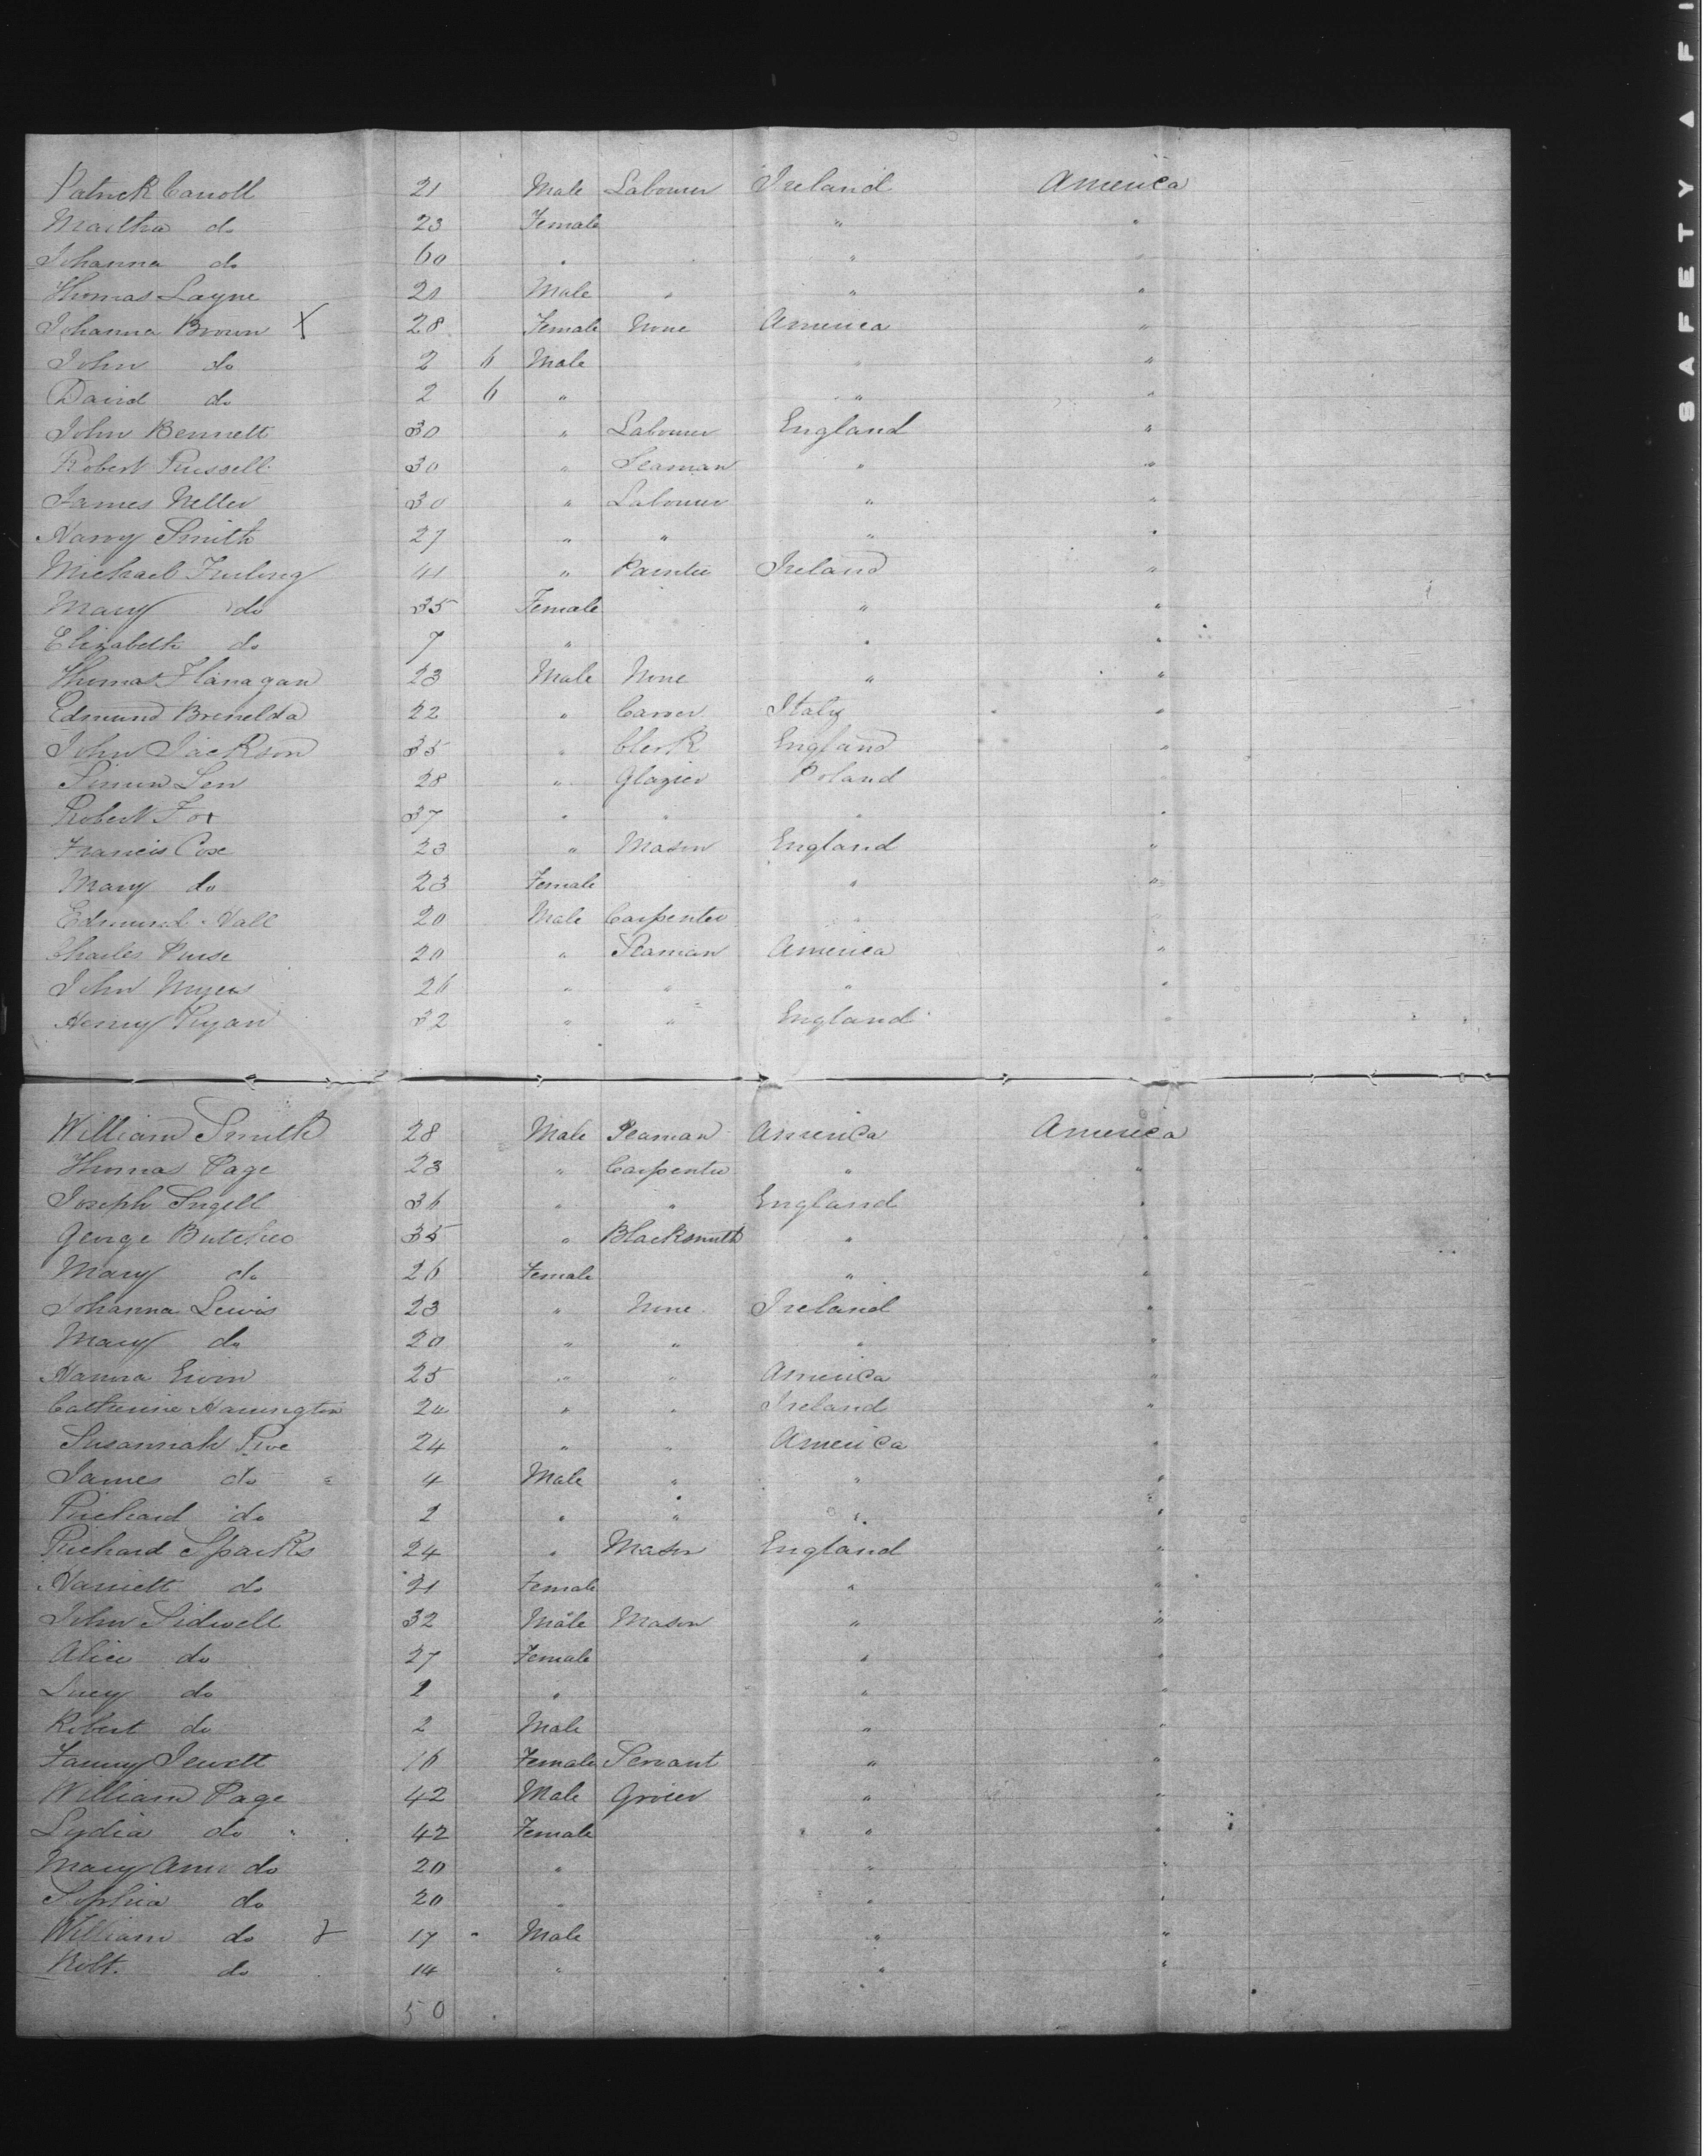 SAFETY A FI
Patrick Carroll 21 Male Labourer Ireland America
Martha do 23 Female " "
Johanna do 60 " " "
Thomas Layne 21 Male " " "
Johanna Brown X 28 Female None America "
John do 2 6 Male " "
David do 2 6 " " "
John Bennett 30 " Labourer England "
Robert Russell 30 " Seaman " "
James Neller 30 " Labourer " "
Harry Smith 27 " " " "
Michael Furlong 41 " Painter Ireland "
Mary do 35 Female " "
Elizabeth do 7 " " "
Thomas Flanagan 23 Male None " "
Edmund 22 " Carver Italy "
John Jackson 35 " Clerk England "
Simon Len 28 " Glazier Poland "
Robert Fox 37 " " " "
Francis Cox 23 " Mason England "
Mary do 23 Female " "
Edmund Hall 20 Male Carpenter " "
Charles Purse 20 " Seaman America "
John Myers 26 " " " "
Henry Ryan 32 " " England "
William Smith 28 Male Seaman America America
Thomas Page 23 " Carpenter " "
Joseph Ingell 36 " " England "
George Butcher 35 " Blacksmith " "
Mary do 26 Female " "
Johanna Lewis 23 " None Ireland "
Mary do 20 " " " "
Hanna 25 " " America "
Catherine Harrington 20 " " Ireland "
Susannah 24 " " America "
James do 4 Male " " "
Richard do 2 " " " "
Richard Sparks 24 " Mason England "
Harriett do 21 Female " "
John Sidwell 32 Male Mason " "
Alice do 27 Female " "
Lucy do " " "
Robert do 2 Male " "
Fanny Jewett 16 Female Servant " "
William Page 42 Male Grocer " "
Lydia do 42 Female " "
Mary Ann do 20 " " "
Sophia do 20 " " "
William do 17 Male " "
Robt. do 14 " " "
50